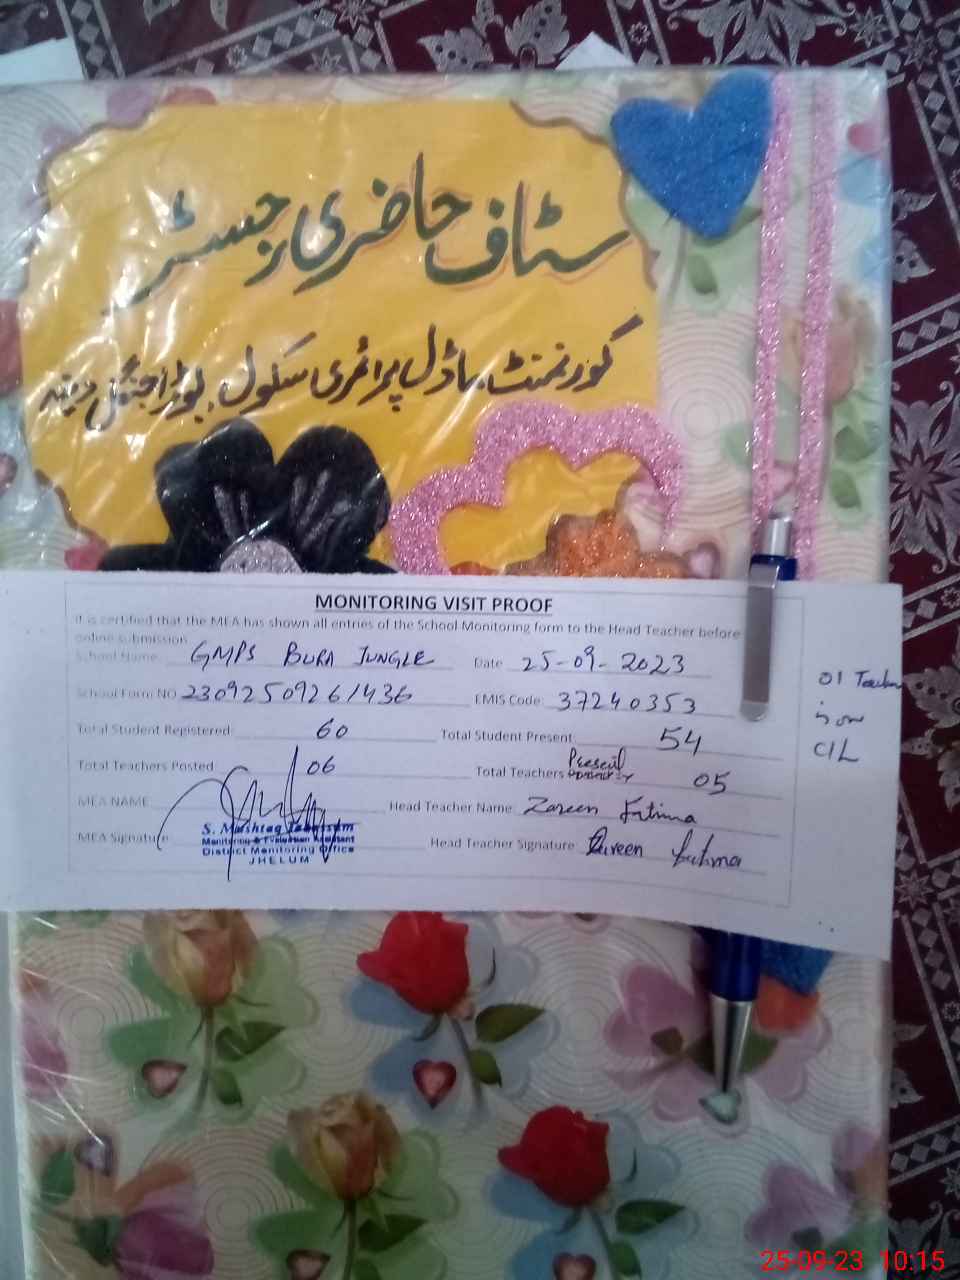 سٹاف حاضری رجسٹر
گورنمنٹ ماڈل پرائمری سکول بوڑا جنگل دینہ
MONITORING VISIT PROOF
It is certified that the MEA has shown all entries of the School Monitoring form to the Head Teacher before
online submission
School Name: GMPS BURA JUNGLE Date 25-09-2023
School Form NO 23092509261436 EMIS Code: 37240353
Total Student Registered: 60 Total Student Present: 54
Total Teachers Posted: 06 Total Teachers Present 05
MEA NAME Head Teacher Name: Zareen Fatima
MEA Signature Head Teacher Signature Zareen Fatima
S. Mushtaq Tabassum
Monitoring & Evaluation Assistant
District Monitoring Office
JHELUM
01 Teacher
is on
C/L
25-09-23 10:15